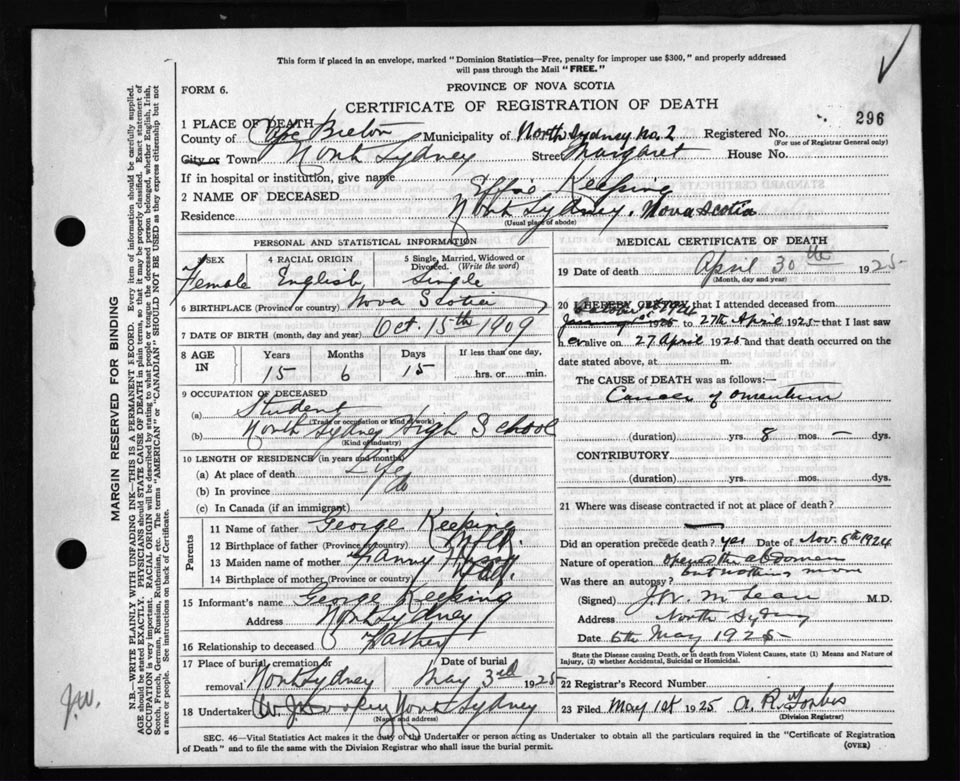 This form if placed in an envelope, marked "Dominion Statistics—Free, penalty for improper use $300," and properly addressed
will pass through the Mail "FREE."
FORM 6.
PROVINCE OF NOVA SCOTIA
CERTIFICATE OF REGISTRATION OF DEATH
296
1 PLACE OF DEATH—
County of Cape Breton Municipality of North Sydney No. 2 Registered No.
(For use of Registrar General only)
City or Town North Sydney Street Margaret House No.
If in hospital or institution, give name
2 NAME OF DECEASED Effie Keeping
Residence North Sydney. Nova Scotia
(Usual place of abode)
PERSONAL AND STATISTICAL INFORMATION
3 SEX 4 RACIAL ORIGIN 5 Single, Married, Widowed or Divorced. (Write the word)
Female English Single
6 BIRTHPLACE (Province or country) Nova Scotia
7 DATE OF BIRTH (month, day and year) Oct. 15th 1909
8 AGE IN Years Months Days If less than one day,
15 6 15 hrs. or min.
9 OCCUPATION OF DECEASED
(a) Student
(Trade or occupation or kind of work)
(b) North Sydney High School
(Kind of industry)
10 LENGTH OF RESIDENCE (in years and months)
(a) At place of death Life
(b) In province do
(c) In Canada (if an immigrant)
Parents
11 Name of father George Keeping
12 Birthplace of father (Province or country) Nfld.
13 Maiden name of mother Fanny
14 Birthplace of mother (Province or country) Nfld.
15 Informant's name George Keeping
Address North Sydney
16 Relationship to deceased Father
17 Place of burial, cremation or removal: North Sydney Date of burial May 3rd 1925
18 Undertaker North Sydney
(Name and address)
MEDICAL CERTIFICATE OF DEATH
19 Date of death April 30th 1925
(Month, day and year)
20 I HEREBY CERTIFY that I attended deceased from
October 1924
January 1st 1925 to 27th April 1925 that I last saw
her alive on 27 April 1925 and that death occurred on the
date stated above, at m.
The CAUSE of DEATH was as follows:—
Cancer of omentum
(duration) yrs. 8 mos. — dys.
CONTRIBUTORY
(duration) yrs. mos. dys.
21 Where was disease contracted if not at place of death?
Did an operation precede death? yes Date of Nov. 6th 1924
Nature of operation opened the abdomen
but nothing more
Was there an autopsy?
(Signed) J. W. McLean M.D.
Address North Sydney
Date 6th May 1925
State the Disease causing Death, or in death from Violent Causes, state (1) Means and Nature of
Injury, (2) whether Accidental, Suicidal or Homicidal.
22 Registrar's Record Number
23 Filed May 1st 1925 A. R. Forbes
(Division Registrar)
SEC. 46—Vital Statistics Act makes it the duty of the Undertaker or person acting as Undertaker to obtain all the particulars required in the "Certificate of Registration
of Death" and to file the same with the Division Registrar who shall issue the burial permit.
(OVER)
MARGIN RESERVED FOR BINDING
N.B.—WRITE PLAINLY WITH UNFADING INK—THIS IS A PERMANENT RECORD. Every item of information should be carefully supplied.
AGE should be stated EXACTLY. PHYSICIANS should STATE CAUSE OF DEATH in plain terms, so that it may be properly classified. Exact statement of
OCCUPATION is very important. RACIAL ORIGIN will be described by stating to what people or tongue the deceased person belonged, whether English, Irish,
Scotch, French, German, Russian, Ruthenian, etc. The terms "AMERICAN" or "CANADIAN" SHOULD NOT BE USED as they express citizenship but not
a race or people. See instructions on back of Certificate.
J.W.